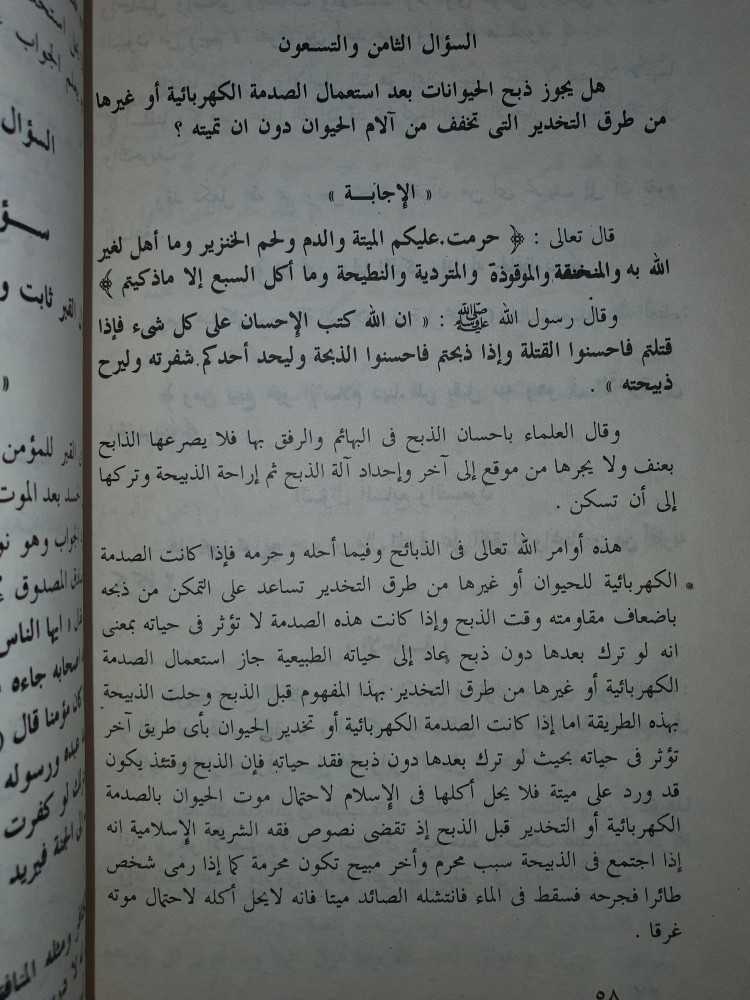 السؤال الثامن والتسعون
هل يجوز ذبح الحيوانات بعد استعمال الصدمة الكهربائية أو غيرها
من طرق التخدير التى تخفف من آلام الحيوان دون ان تميته ؟
« الإجابـــة »
قال تعالى : ﴿ حرمت.عليكم الميتة والدم ولحم الخنزير وما أهل لغير
الله به والمنخنقة والموقوذة والمتردية والنطيحة وما أكل السبع إلا ماذكيتم ﴾
وقال رسول الله ﷺ : « ان الله كتب الإحسان على كل شىء فإذا
قتلتم فاحسنوا القتلة وإذا ذبحتم فاحسنوا الذبحة وليحد أحدكم شفرته وليرح
ذبيحته » .
وقال العلماء باحسان الذبح فى البهائم والرفق بها فلا يصرعها الذابح
بعنف ولا يجرها من موقع إلى آخر وإحداد آلة الذبح ثم إراحة الذبيحة وتركها
إلى أن تسكن .
هذه أوامر الله تعالى فى الذبائح وفيما أحله وحرمه فإذا كانت الصدمة
الكهربائية للحيوان أو غيرها من طرق التخدير تساعد على التمكن من ذبحه
باضعاف مقاومته وقت الذبح وإذا كانت هذه الصدمة لا تؤثر فى حياته بمعنى
انه لو ترك بعدها دون ذبح عاد إلى حياته الطبيعية جاز استعمال الصدمة
الكهربائية أو غيرها من طرق التخدير بهذا المفهوم قبل الذبح وحلت الذبيحة
بهذه الطريقة اما إذا كانت الصدمة الكهربائية أو تخدير الحيوان بأى طريق آخر
تؤثر فى حياته بحيث لو ترك بعدها دون ذبح فقد حياته فإن الذبح وقتئذ يكون
قد ورد على ميتة فلا يحل أكلها فى الإسلام لاحتمال موت الحيوان بالصدمة
الكهربائية أو التخدير قبل الذبح إذ تقضى نصوص فقه الشريعة الإسلامية انه
إذا اجتمع فى الذبيحة سبب محرم وأخر مبيح تكون محرمة كما إذا رمى شخص
طائرا فجرحه فسقط فى الماء فانتشله الصائد ميتا فانه لايحل أكله لاحتمال موته
غرقا .
٥٨
السؤال
ثابت و
القبر للمؤمن
الجسد بعد الموت
الجواب وهو نو
المصدوق
ايها الناس
جاءه
كان مؤمنا قال
عبده ورسوله
لو كفرت
الجنة فيريد